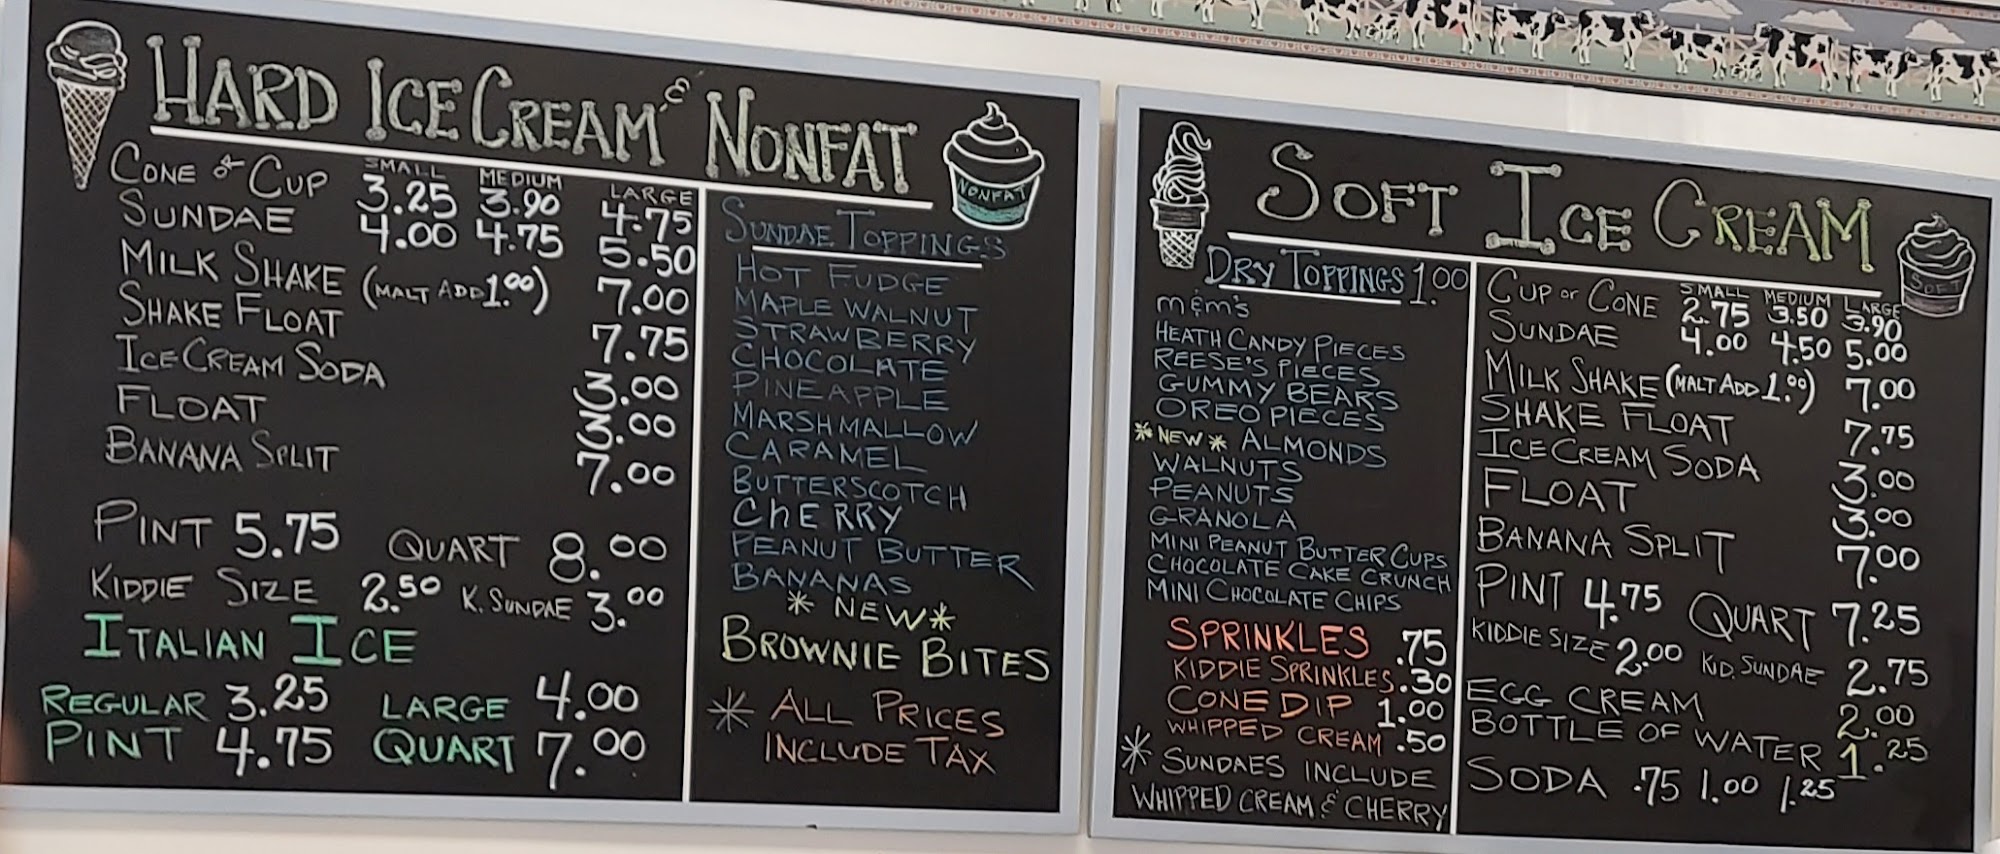 HARD ICE CREAM & NONFAT
NONFAT
SMALL MEDIUM LARGE
CONE or CUP 3.25 3.90 4.75
SUNDAE 4.00 4.75 5.50
MILK SHAKE (MALT ADD 1.00) 7.00
SHAKE FLOAT 7.75
ICE CREAM SODA 3.00
FLOAT 3.00
BANANA SPLIT 7.00
PINT 5.75 QUART 8.00
KIDDIE SIZE 2.50 K. SUNDAE 3.00
ITALIAN ICE
REGULAR 3.25 LARGE 4.00
PINT 4.75 QUART 7.00
SUNDAE TOPPINGS
HOT FUDGE
MAPLE WALNUT
STRAWBERRY
CHOCOLATE
PINEAPPLE
MARSHMALLOW
CARAMEL
BUTTERSCOTCH
ChERRY
PEANUT BUTTER
BANANAS
* NEW *
BROWNIE BITES
* ALL PRICES
INCLUDE TAX
SOFT ICE CREAM
SOFT
DRY TOPPINGS 1.00
m&m's
HEATH CANDY PIECES
REESE'S PIECES
GUMMY BEARS
OREO PIECES
*NEW* ALMONDS
WALNUTS
PEANUTS
GRANOLA
MINI PEANUT BUTTER CUPS
CHOCOLATE CAKE CRUNCH
MINI CHOCOLATE CHIPS
SPRINKLES .75
KIDDIE SPRINKLES .30
CONE DIP 1.00
WHIPPED CREAM .50
* SUNDAES INCLUDE
WHIPPED CREAM & CHERRY
SMALL MEDIUM LARGE
CUP or CONE 2.75 3.50 3.90
SUNDAE 4.00 4.50 5.00
MILK SHAKE (MALT ADD 1.00) 7.00
SHAKE FLOAT 7.75
ICE CREAM SODA 3.00
FLOAT 3.00
BANANA SPLIT 7.00
PINT 4.75 QUART 7.25
KIDDIE SIZE 2.00 KID. SUNDAE 2.75
EGG CREAM 2.00
BOTTLE OF WATER 1.25
SODA .75 1.00 1.25